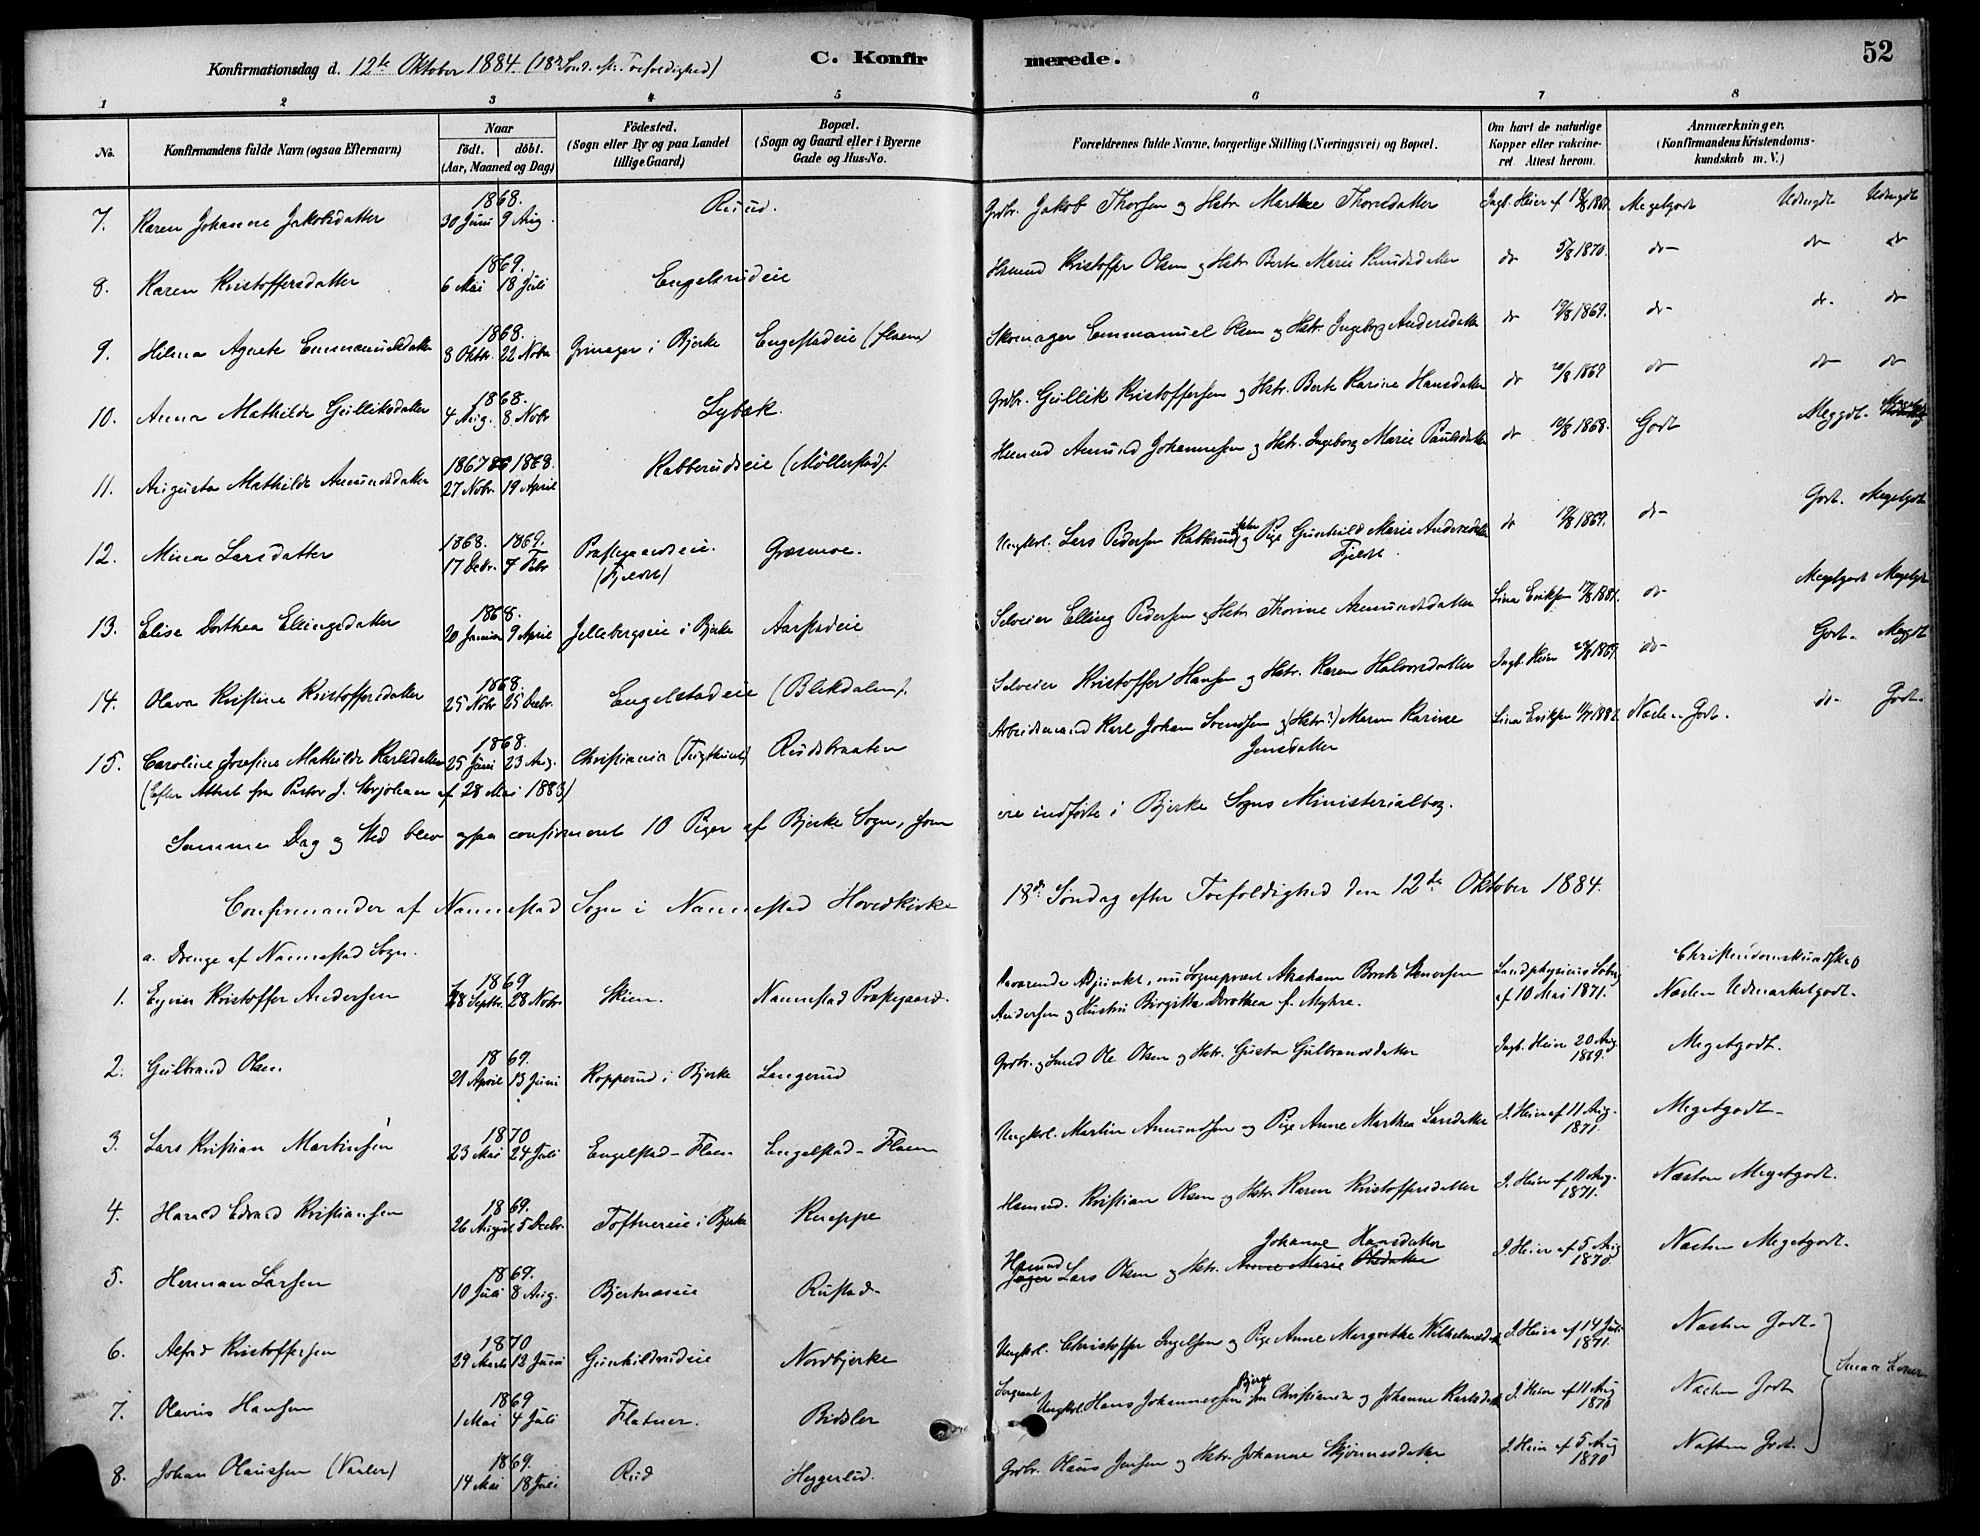 Konfirmationsdag d. 12te Oktober 1884. (18de Sönd. eft. Trefoldighed)
C. Konfirmerede.
52
1 2 3 4 5 6 7 8
No.
Konfirmandens fulde Navn (ogsaa Efternavn)
Naar
födt. döbt.
(Aar, Maaned og Dag)
Födested.
(Sogn eller By og paa Landet
tillige Gaard)
Bopæl.
(Sogn og Gaard eller i Byerne
Gade og Hus-No.
Forældrenes fulde Navne, borgerlige Stilling (Næringsvei) og Bopæl.
Om havt de naturlige
Kopper eller vakcine-
ret Attest herom.
Anmærkninger.
(Konfirmandens Kristendoms-
kundskab m. V.)
1868.
7. Karen Johanne Jakobsdatter 30 Juni 9 Aug. Ruud. Grdbr. Jakob Thorsen og Hstr. Marthe Thorsdatter Ingb. Heier af 1869. Megetgodt Udmgdt Udmgdt
1869.
8. Karen Kristoffersdatter 6 Mai 18 Juli Engelsrudeie Hsmnd Kristoffer Olsen og Hstr. Berte Marie Knudsdatter do 5/8 1870. do do do
1868.
9. Hilma Agnete Emmanuelsdatter 8 Oktbr. 22 Novbr Grinager i Bjerke Engestadeie (Flaen) Skomager Emmanuel Olsen og Hstr. Ingeborg Andersdatter do 1869. do do do
1868.
10. Anna Mathilde Gulliksdatter 4 Aug. 8 Nobr Lybæk. Grdbr. Gullik Kristoffersen og Hstr. Berte Karine Hansdatter do 1869 do do do
1867 1868.
11. Augusta Mathilde Amundsdatter 27 Nobr. 19 April Kabberudseie (Möllerstad). Hsmnd Amund Johannesen og Hstr. Ingeborg Marie Paulsdatter do 1868. Godt Meggdt.
1868. 1869.
12. Mina Larsdatter 17 Decbr. 7 Febr Præstegaardseie. Græsmoe. Ungkrl. Lars Pedersen Kabberud og Pige Gunhild Marie Andersdatter do 1869. do Godt. Megetgodt
(Fjeldst) Fjeldst.
1868.
13. Elise Dorthea Ellingsdatter 20 Januar 9 April Jellebergseie i Bjerke Aarstadeie Selveier Elling Pedersen og Hstr. Thorine Amundsdatter Lina Eriksen 1881. do Megetgodt Megetgdt
1868.
14. Olava Kristine Kristoffersdatter 25 Nobr 25 Decbr. Engelstadeie (Blikdalen). Selveier Kristoffer Hansen og Hstr. Karen Halvorsdatter Ingb. Heier 1869. do Godt. Meggdt
1868.
15. Caroline Josefine Mathilde Karlsdatter 25 Juni 23 Aug. Christiania Rudsbraaten Arbeidsmand Karl Johan Svendsen og (Hstr.?) Maren Karine Lina Eriksen 1882. Næsten Godt. do Godt.
Jensdatter
(Efter Attest fra Pastor J. af 28 Mai 1883)
Samme Dag og Sted blev ogsaa confirmeret 10 Piger af Bjerke Sogn, som ere indförte i Bjerke Sogns Ministerialbog.
Confirmander af Nannestad Sogn i Nannestad Hovedkirke 18de Söndag efter Trefoldighed den 12te Oktober 1884.
a. Drenge af Nannestad Sogn. Christendomskundskab
1869
1. Eyvin Kristoffer Andersen 28 Septbr. 28 Nobr. Skien. Nannestad Præstegaard. Daværende Adjunkt, nu Sognepræst Abraham Borch Andersen og Hustru Birgitte Dorothea f. Myhre. Landphysicus af 10 Mai 1871. Næsten Udmærketgodt.
1869.
2. Gulbrand Olsen 21 April 13 Juni Kopperud i Bjerke Langerud Grdbr. og Smed Ole Olsen og Hstr. Gusta Gulbrandsdatter Ingb. Heier 20 Aug. 1869. Megetgodt.
1870
3. Lars Kristian Martinsen 23 Mai 24 Juli Engelstad-Flaen Engelstad-Flaen Ungkrl. Martin Amundsen og Pige Anne Marthea Larsdatter I. Heier af 11 Aug. 1871. Megetgodt-
1869.
4. Harald Edvard Kristiansen 26 August 5 Decbr. Toftnereie i Bjerke Kneppe Hsmnd. Kristian Olsen og Hstr. Karen Kristoffersdatter I. Heier af 11 Aug. 1871. Næsten Megetgodt.
1869.
5. Herman Larsen 10 Juli 8 Aug. Bjertnæseie Rustad. Hsmnd Lars Olsen og Hstr. Johanne Hansdatter Anne Marie Olsdatter I. Heier af 5 Aug 1870. Næsten Megetgodt.
1870
6. Alfred Kristoffersen 29 Marts 12 Juni Gunhildrudeie Nordbjerke Ungkrl. Christoffer Ingelsen og Pige Anne Margrethe Wilhelmsdatter I. Heier af 14 Juli 1871. Næsten Godt.
1869
7. Olavus Hansen 1 Mai 4 Juli Flatner. Bidsler Sergeant Ungkrl. Hans Johannessen Bjerge fra Christiania og Johanne Karlsdatter I. Heier af 11 Aug 1870 Næsten Godt
1869.
8. Johan Olaussen (Varler) 14 Mai 18 Juli Rud Heggerud. Grdbr. Olaus Jensen og Hstr. Johanne Skjönnesdatter I. Heier af 5 Aug 1870 Næsten Godt.